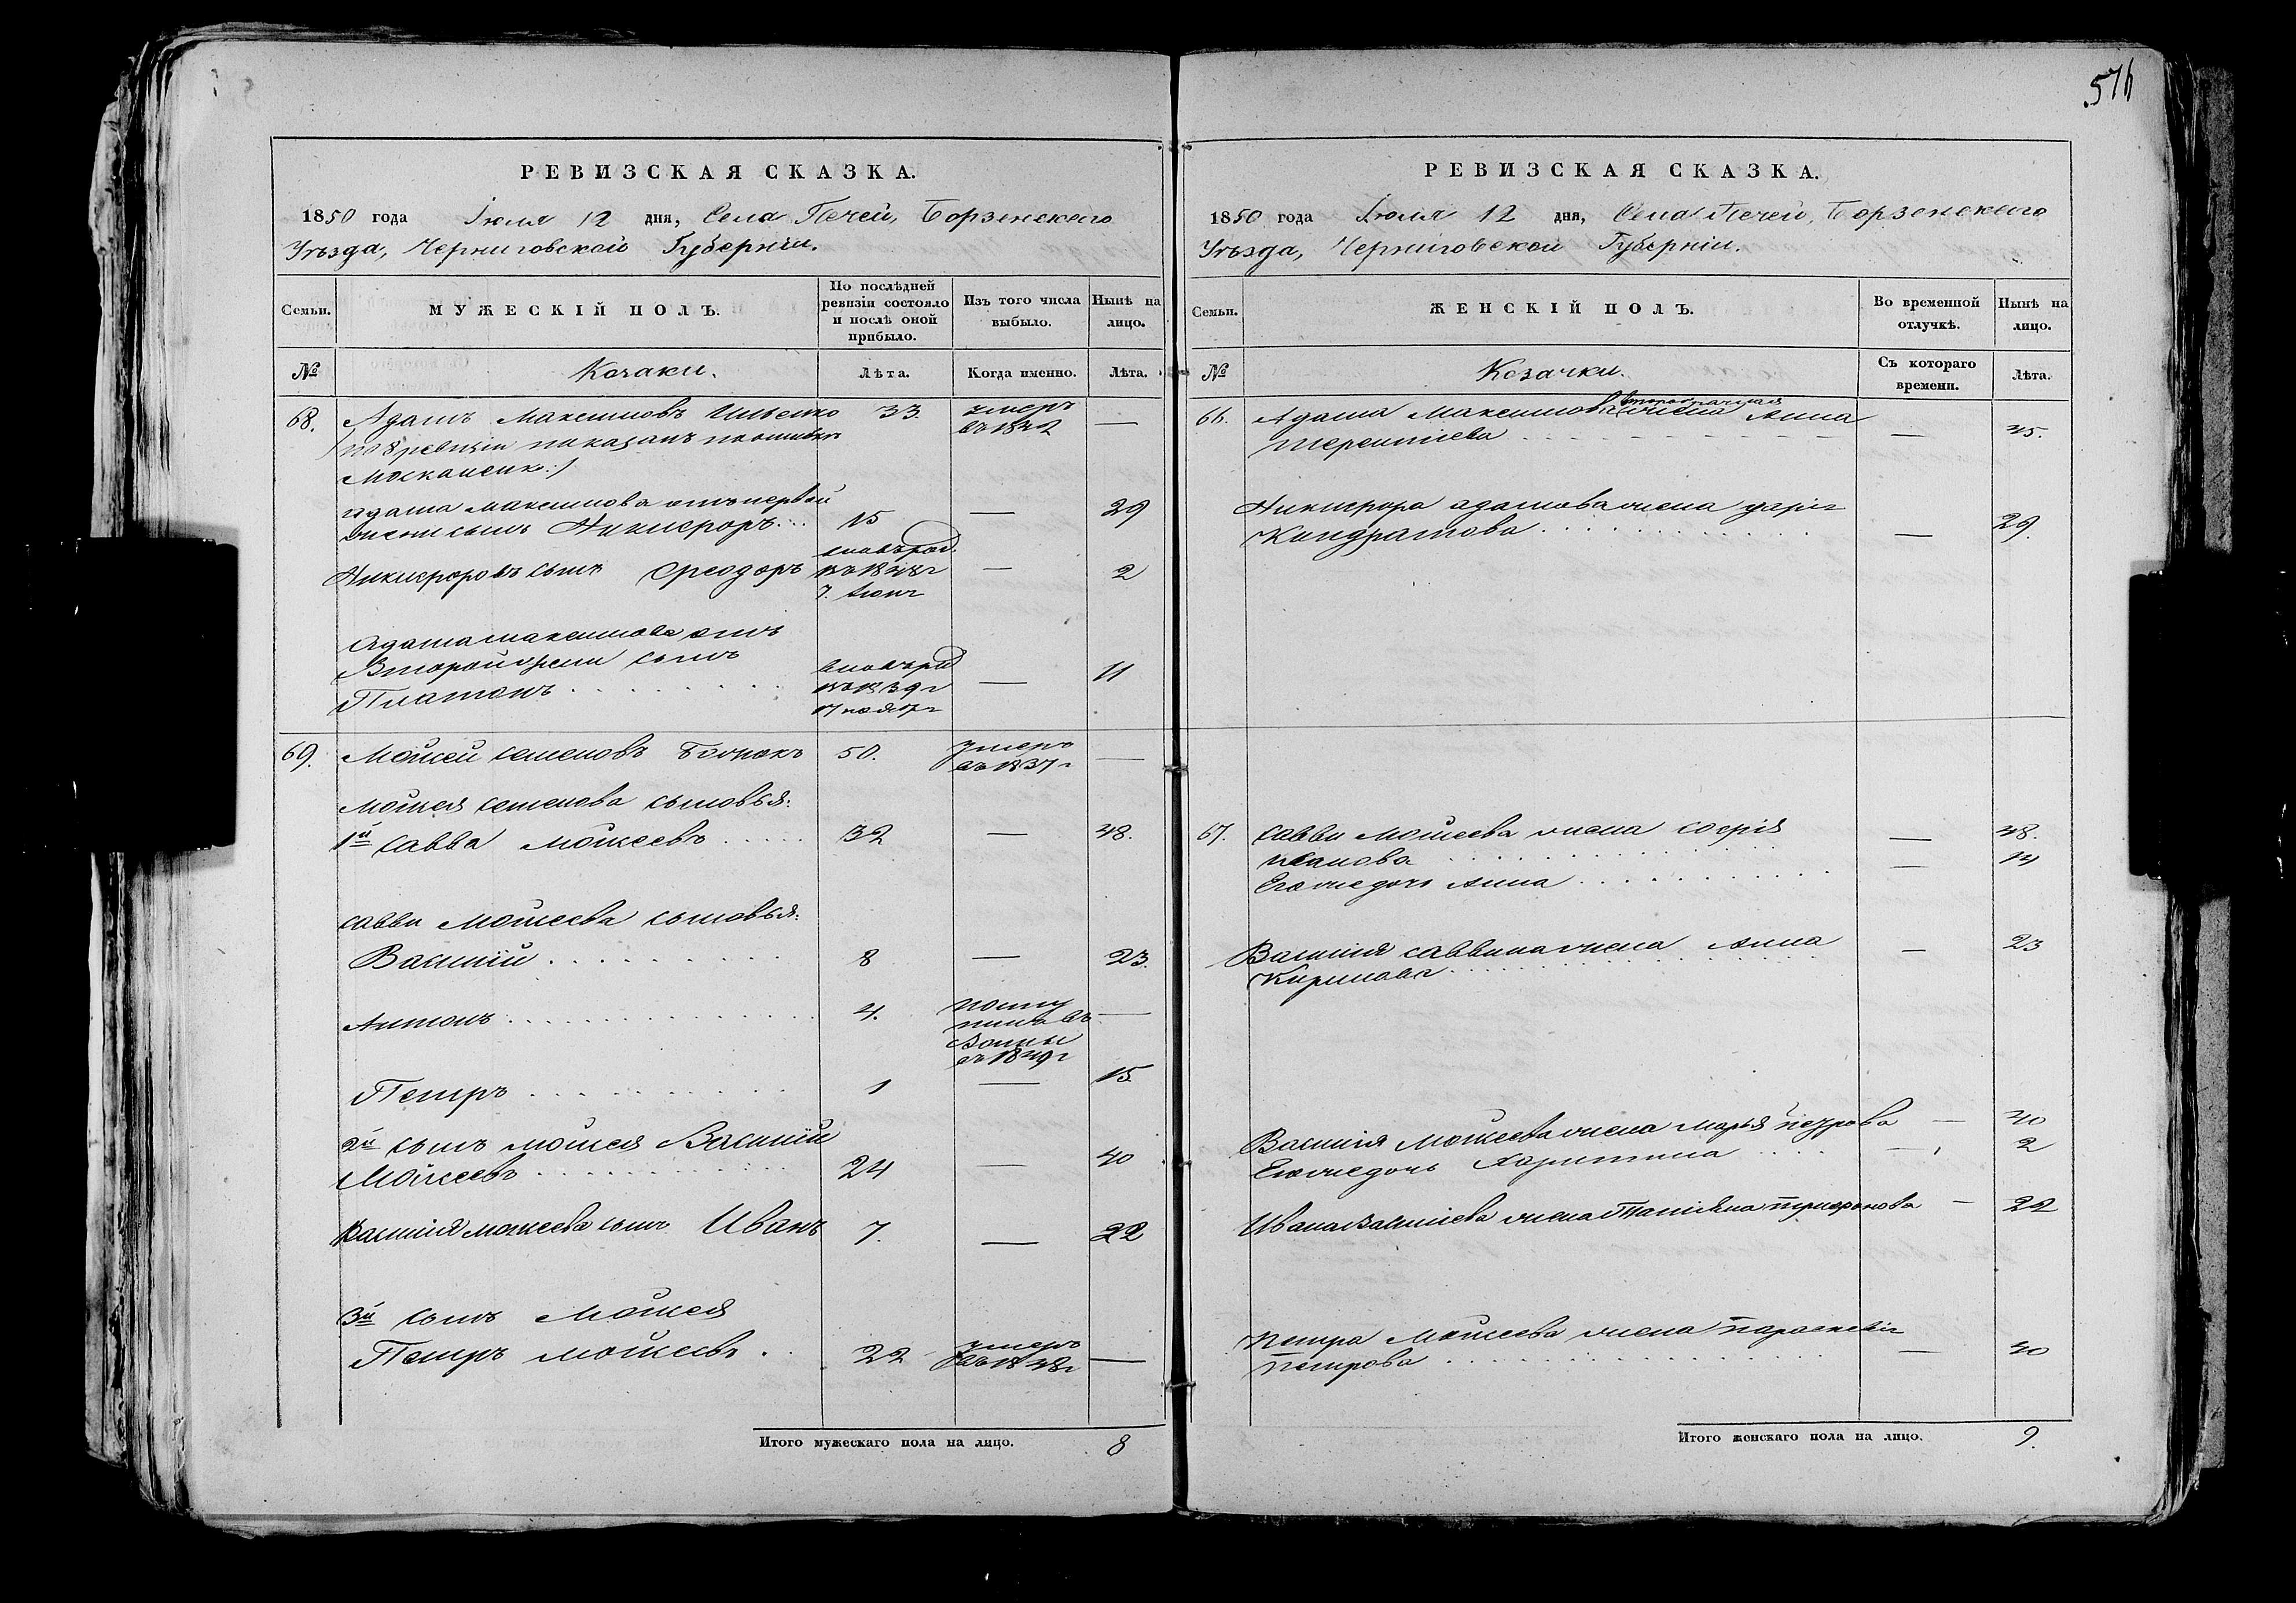 576
РЕВИЗСКАЯ СКАЗКА.
1850 года Іюля 12 дня, Села Печей, Борзенскаго
Уѣзда, Черниговской Губерніи.
Семьи.
МУЖЕСКІЙ ПОЛЪ.
По послѣдней
ревизіи состояло
и послѣ оной
прибыло.
Изъ того числа
выбыло.
Нынѣ на
лицо.
№
Козаки.
Лѣта.
Когда именно.
Лѣта.
68. Адамъ Максимовъ 33. умеръ —
въ 1842
/по 8 ревизіи показанъ по ошибкѣ
Адама Максимова отъ первой
жены сынъ Никифоръ... 15 — 29
Никифоровъ сынъ Феодоръ вновь род. въ 1848 г — 2
7. Іюня
Адама Максимова отъ
Второй жены сынъ
Платонъ вновь род. въ 1839 г — 11
17 ноября
69. Мойсей Семеновъ 50. умеръ —
въ 1837 г
Мойсея Семенова сыновья:
1й Савва Мойсеевъ 32 — 48.
Саввы Мойсеева сыновья:
Василій 8 — 23.
Антонъ 4. —
въ 1849 г
Петръ 1 — 15
2й сынъ Мойсея Василій
Мойсеевъ 24 — 40
Василія Мойсеева сынъ Иванъ 7. — 22
3й сынъ Мойсея
Петръ Мойсеевъ 22 умеръ —
въ 1848 г
Итого мужескаго пола на лицо. 8
РЕВИЗСКАЯ СКАЗКА.
1850 года Іюля 12 дня, Села Печей, Борзенскаго
Уѣзда, Черниговской Губерніи.
Семьи.
ЖЕНСКІЙ ПОЛЪ.
Во временной
отлучкѣ.
Нынѣ на
лицо.
№
Козачки.
Съ котораго
времени.
Лѣта.
66. Адама Максимова второбрачная жена Анна
Терентіева — 45.
Никифора Адамова жена Дарія
Кондратова — 29.
67. Саввы Мойсеева жена Софія — 48.
Иванова — 14
Его же дочь Анна
Василія Саввина жена Анна — 23
Кирилова
Василія Мойсеева жена Марья Петрова — 40
Его же дочь Харитина — 2
Ивана Васильева жена Татіяна Трифонова — 22
Петра Мойсеева жена Параскевія
Петрова — 40
Итого женскаго пола на лицо. 9.